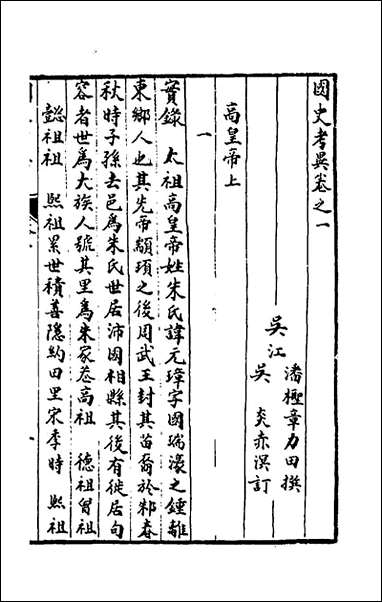 國史考異卷之一
吳江 潘檉章力田撰
吳 炎赤溟訂
高皇帝上
一
實錄 太祖高皇帝姓朱氏諱元璋字國瑞濠之鍾離
東鄉人也其先帝顓頊之後周武王封其苗裔於邾春
秋時子孫去邑爲朱氏世居沛國相縣其後有徙居句
容者世爲大族人號其里爲朱家巷高祖 德祖曾祖
懿祖祖 熙祖累世積善隱約田里宋季時 熙祖